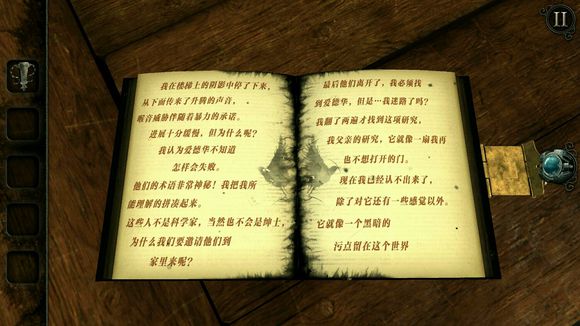 我在楼梯上的阴影中停了下来，
从下面传来了升腾的声音，
喉音威胁伴随着暴力的承诺。
进展十分缓慢，但为什么呢？
我认为爱德华不知道
怎样会失败。
他们的术语非常神秘！我把我所
能理解的拼凑起来。
这些人不是科学家，当然也不会是绅士，
为什么我们要邀请他们到
家里来呢？
最后他们离开了，我必须找
到爱德华，但是…我迷路了吗？
我翻了两遍才找到这项研究，
我父亲的研究，它就像一扇我再
也不想打开的门。
现在我已经认不出来了，
除了对它还有一些感觉以外。
它就像一个黑暗的
污点留在这个世界